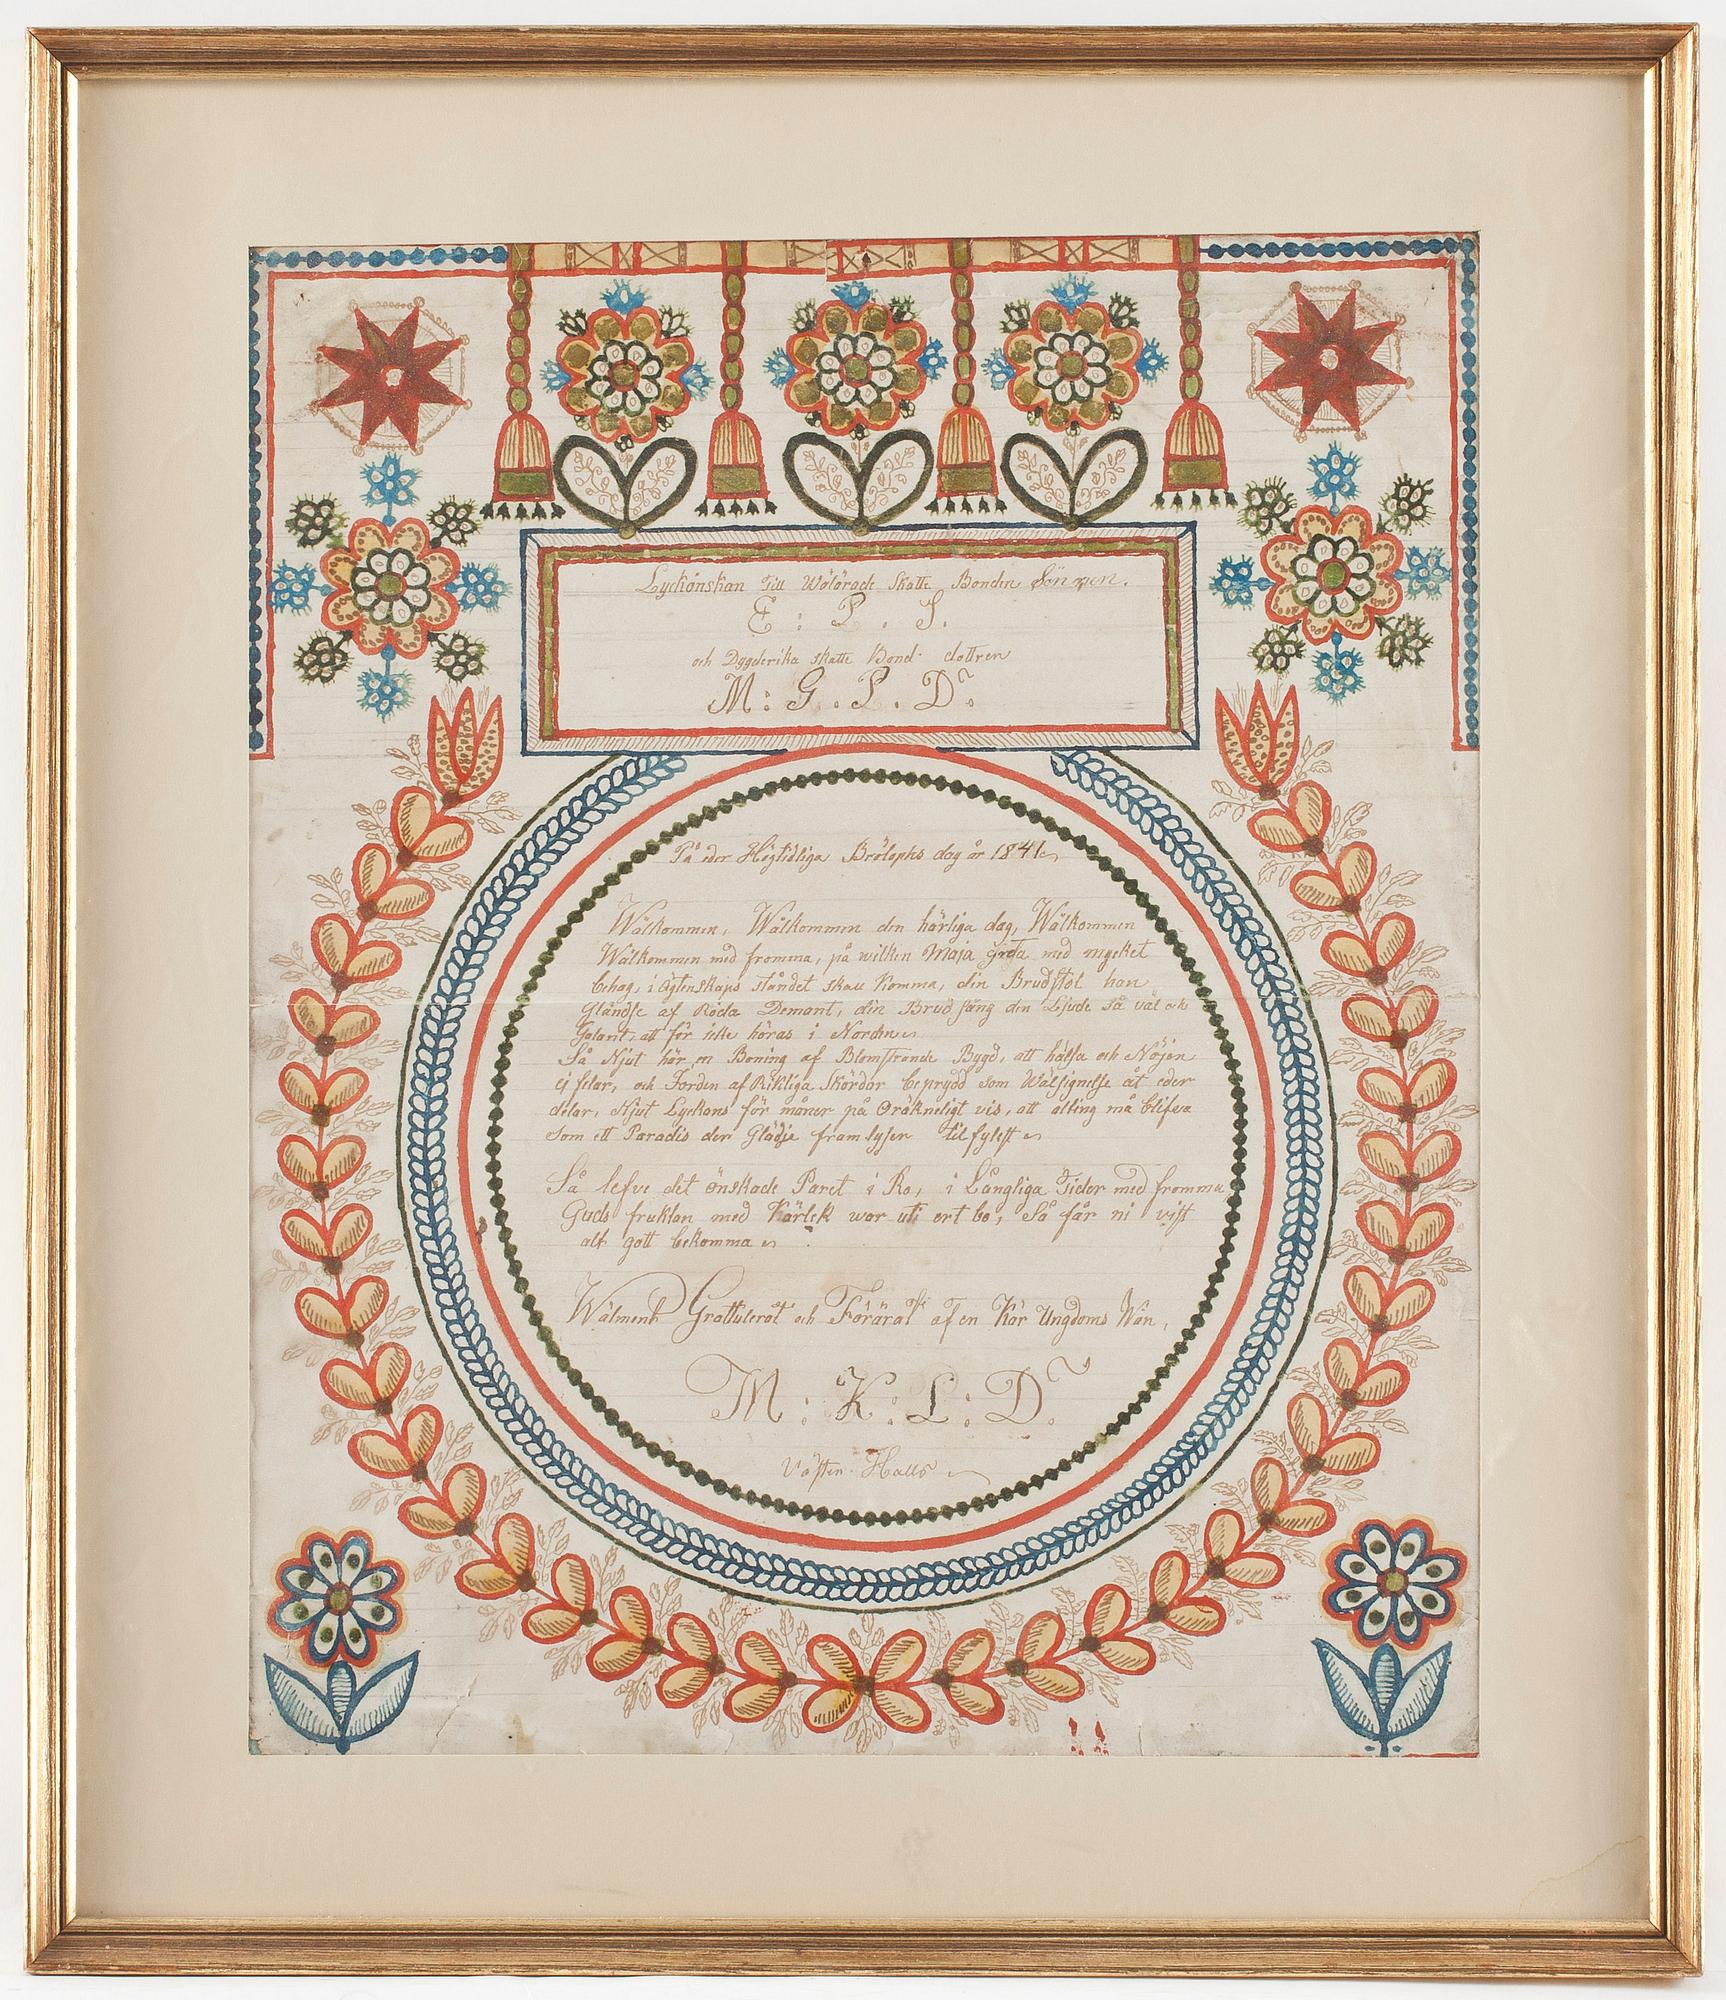 Lyckönskan Till Wälärade Skatte Bonden Sönnen.
E : P . S.
och Dygderika skatte Bond dottren
M : G . P . D.
På eder Högtidliga Brölophs dag år 1841
Wälkommen, Wälkommen den härliga dag, Wälkommen
Wälkommen med fromma, på wilken Maja greta med mycket
behag, i ägtenskaps ståndet skall komma, din Brudstol han
Gländse af Röda Demant, din Brud säng den Ljude så väl och
Galant, att för icke höras i Norden
Så Njut här en Boning af Blomstrande Bygd, att hälsa och Nöjen
ej felar, och Jorden af Rikliga Skördar beprydd som Wälsignelse åt eder
delar, Njut Lyckans för måner på Oräkneligt vis, att alting må blifva
som ett Paradis der Glädje framlyser til fylest
Så lefve det önskade Paret i Ro, i Långliga Tider med fromma
Guds fruktan med Kärlek war uti ert bo, Så får ni vist
alt gott bekomma
Wälment Grattulerat och Förärat af en Kär Ungdoms Wän,
M : K : L : D.
Väster Halls